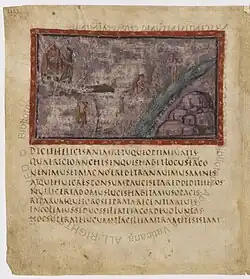 DICITEFELICESANIMAETUQUEOPTIMEUATES
QUAEREGIOANCHISENQUISHABETLOCUSILLIUSERGO
UENIMUSETMAGNOSEREBITRANAUIMUSAMNIS
ATQUEHUICRESPONSUMPAUCISITAREDDIDITHEROS
NULLICERTADOMUSLUCISHABITAMUSOPACIS
RIPARUMQUETOROSETPRATARECENTIARIUIS
INCOLIMUSSEDUOSSIFERTITACORDEUOLUNTAS
HOCSUPERATEIUGUMETFACILIIAMTRAMITESISTAM